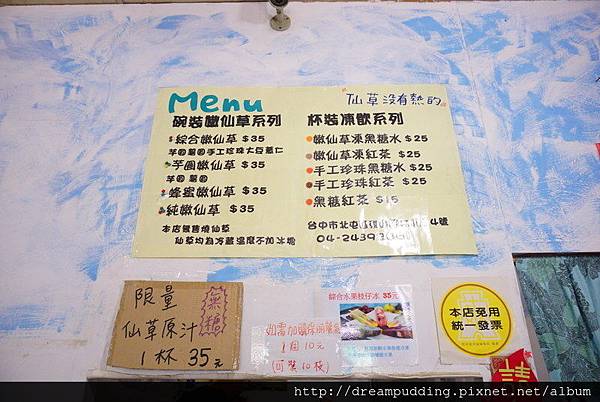 Menu
仙草沒有熱的
碗裝嫩仙草系列
綜合嫩仙草 $35
芋圓 薯圓 手工珍珠 大豆 薏仁
芋圓嫩仙草 $35
芋圓 薯圓
蜂蜜嫩仙草 $35
純嫩仙草 $35
本店無售燒仙草
仙草均為冷藏溫度不加冰塊
杯裝凍飲系列
嫩仙草凍黑糖水 $25
嫩仙草凍紅茶 $25
手工珍珠黑糖水 $25
手工珍珠紅茶 $25
黑糖紅茶 $15
台中市北屯區
04-2439
限量
無糖
仙草原汁
1杯 35元
如需加購
1個10元
綜合水果枝仔冰 35元
本店免用
統一發票
請
http://dreampudding.pixnet.net/album